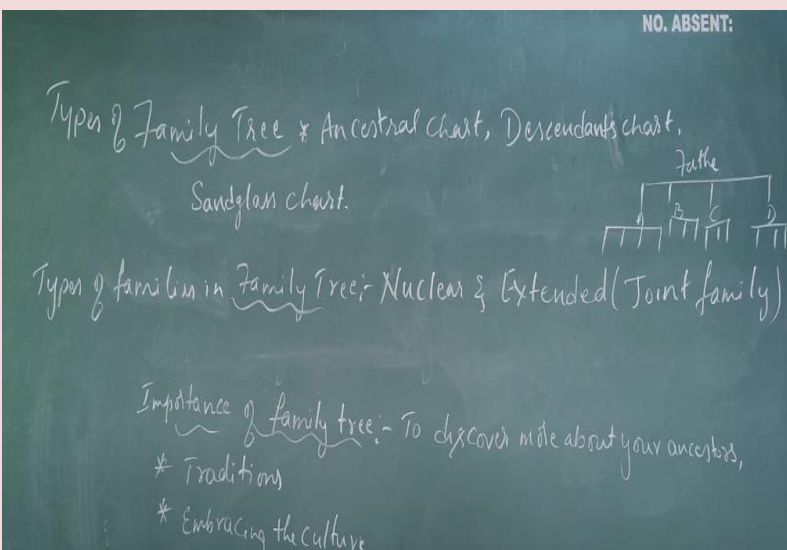 NO. ABSENT:
Types of Family Tree * Ancestral chart, Descendants chart,
Sandglass chart.
Fathe
A B C D
Types of families in Family Tree:- Nuclear & Extended (Joint family)
Importance of family tree:- To discover more about your ancestors,
* Traditions
* Embracing the culture